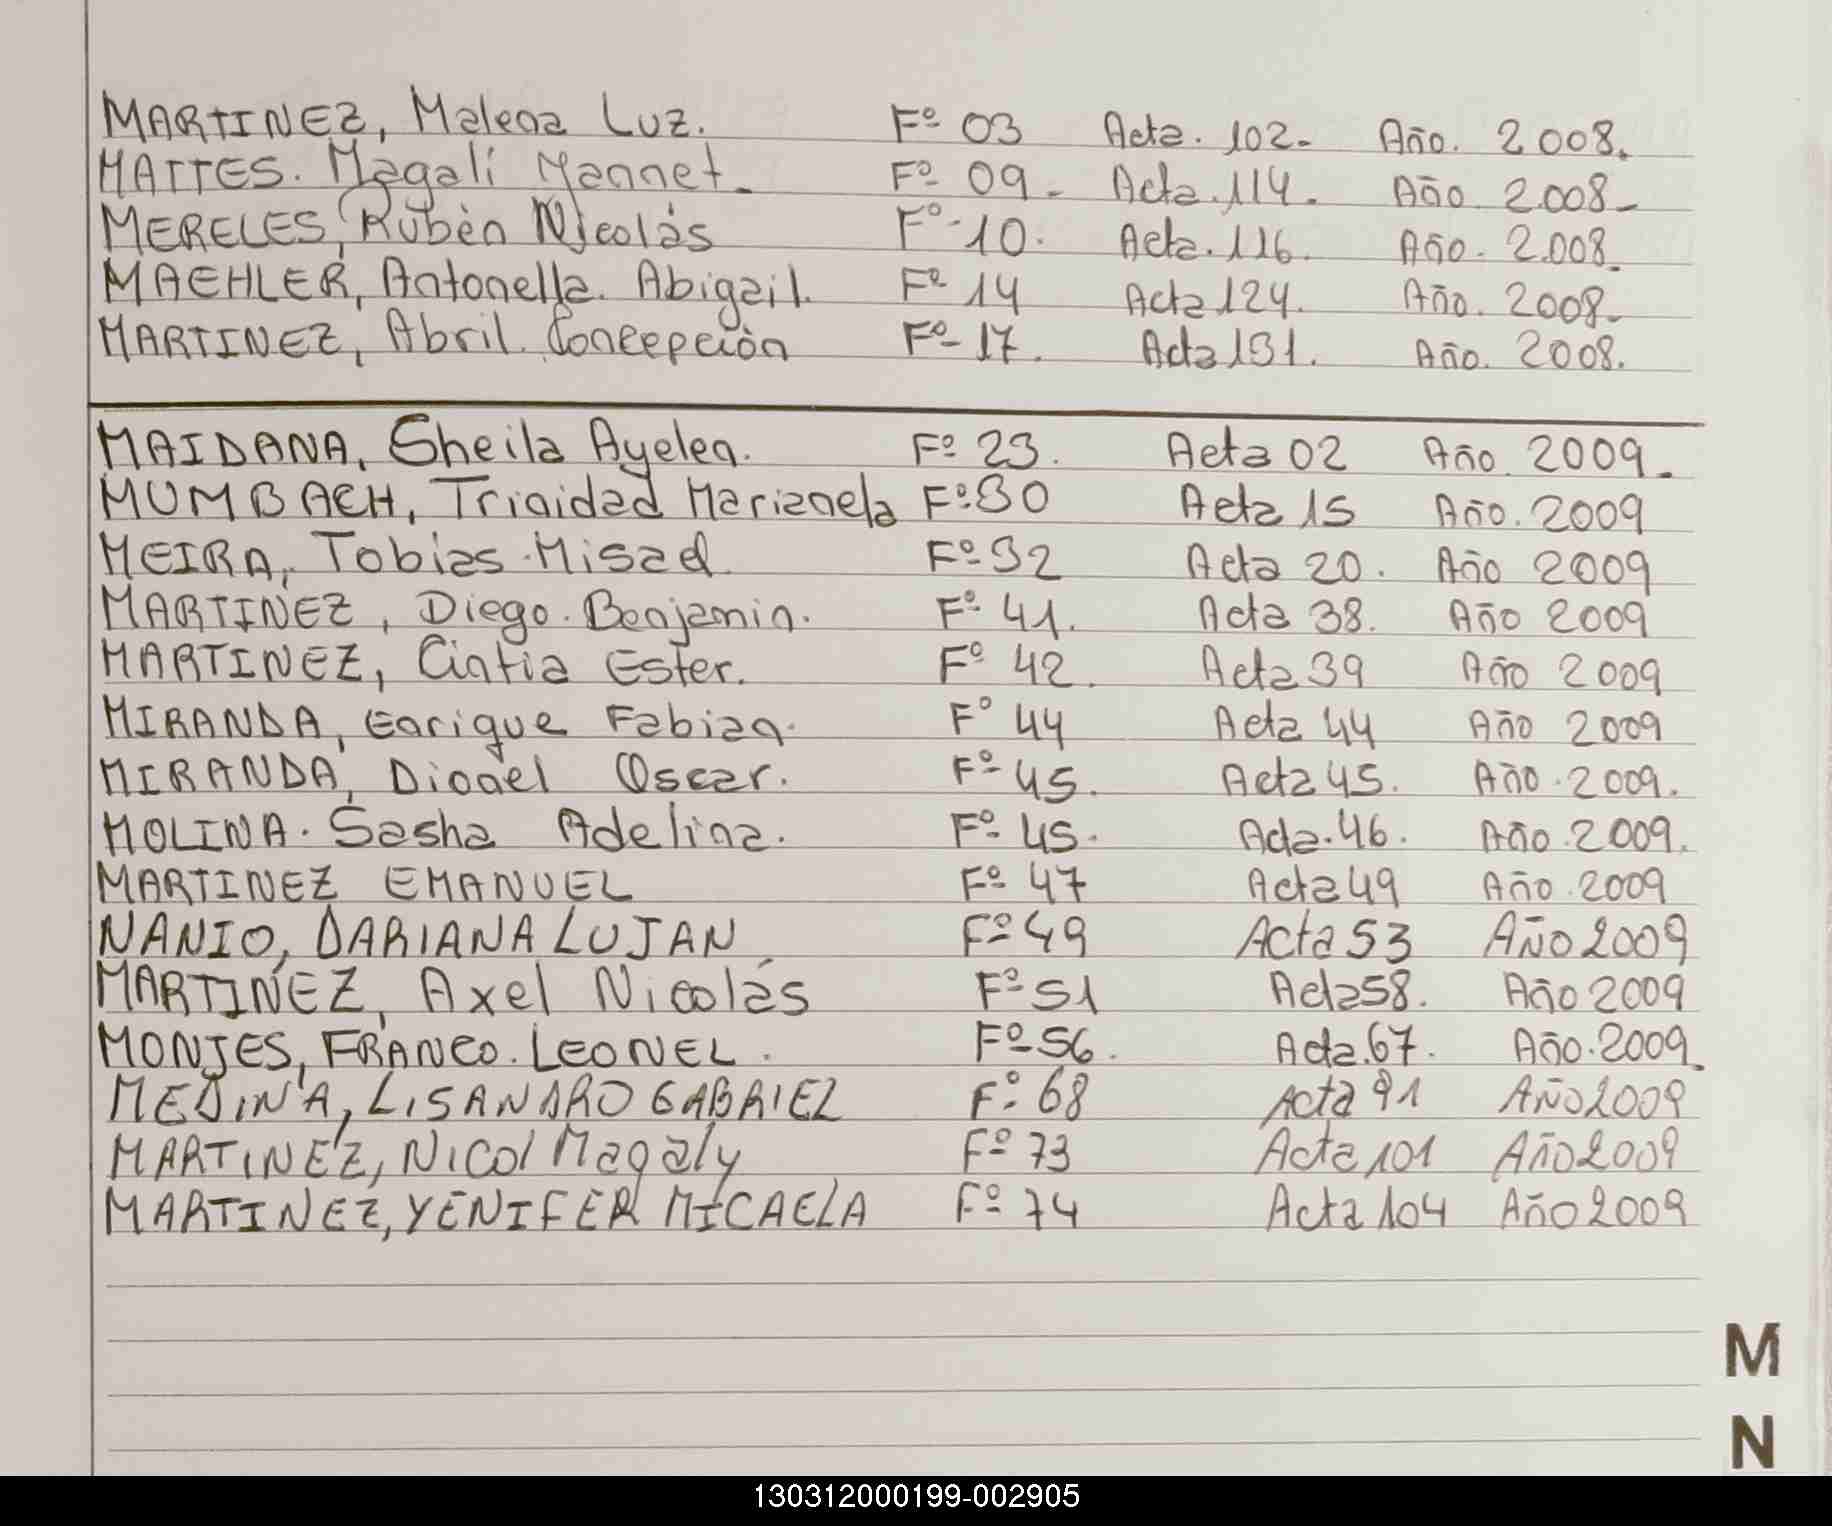 MARTINEZ, Malena Luz. Fº 03 Acta. 102- Año. 2008.
MATTES. Magalí Yannet- Fº 09- Acta.114. Año 2008-
MERELES, Rubèn Nicolàs Fº-10. Acta.116. Año. 2008.
MAEHLER, Antonella. Abigail. Fº 14 Acta 124. Año. 2008-
MARTINEZ, Abril. Concepciòn Fº 17. Acta 131. Año. 2008.
MAIDANA, Sheila Ayelen. Fº 23. Acta 02 Año. 2009-
MUMBACH, Trinidad Marianela Fº 30 Acta 15 Año. 2009
MEIRA, Tobias Misael Fº 32 Acta 20. Año 2009
MARTINEZ, Diego. Benjamin. Fº 41. Acta 38. Año 2009
MARTINEZ, Cintia Ester. Fº 42. Acta 39 Año 2009
MIRANDA, Enrique Fabian. Fº 44 Acta 44 Año 2009
MIRANDA, Dionel Oscar. Fº 45. Acta 45. Año. 2009.
MOLINA. Sasha Adelina. Fº 45. Acta.46. Año. 2009.
MARTINEZ EMANUEL Fº 47 Acta 49 Año. 2009
NANIO, DARIANA LUJAN Fº 49 Acta 53 AÑO 2009
MARTINEZ, Axel Nicolás Fº 51 Acta 58. Año 2009
MONJES, FRANCO. LEONEL. Fº 56. Acta.67. Año. 2009.
MEDINA, LISANDRO GABRIEL Fº 68 Acta 91 AÑO 2009
MARTINEZ, Nicol Magaly Fº 73 Acta 101 AÑO 2009
MARTINEZ, YENIFER MICAELA Fº 74 Acta 104 AÑO 2009
M
N
130312000199-002905